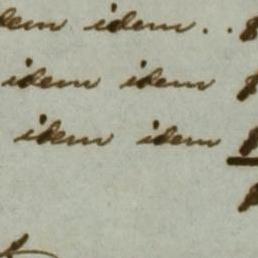 idem idem . .
idem idem
idem idem